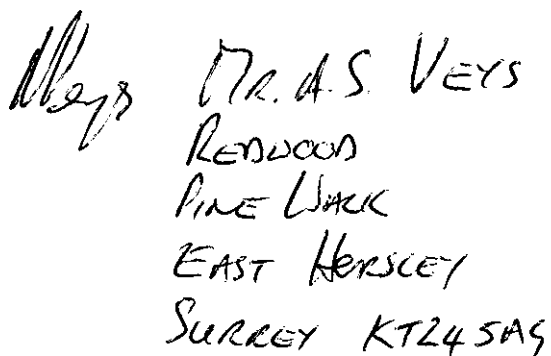 Veys Mr. A. S. VEYS
REDWOOD
PINE WALK
EAST HORSLEY
SURREY KT24 5AG